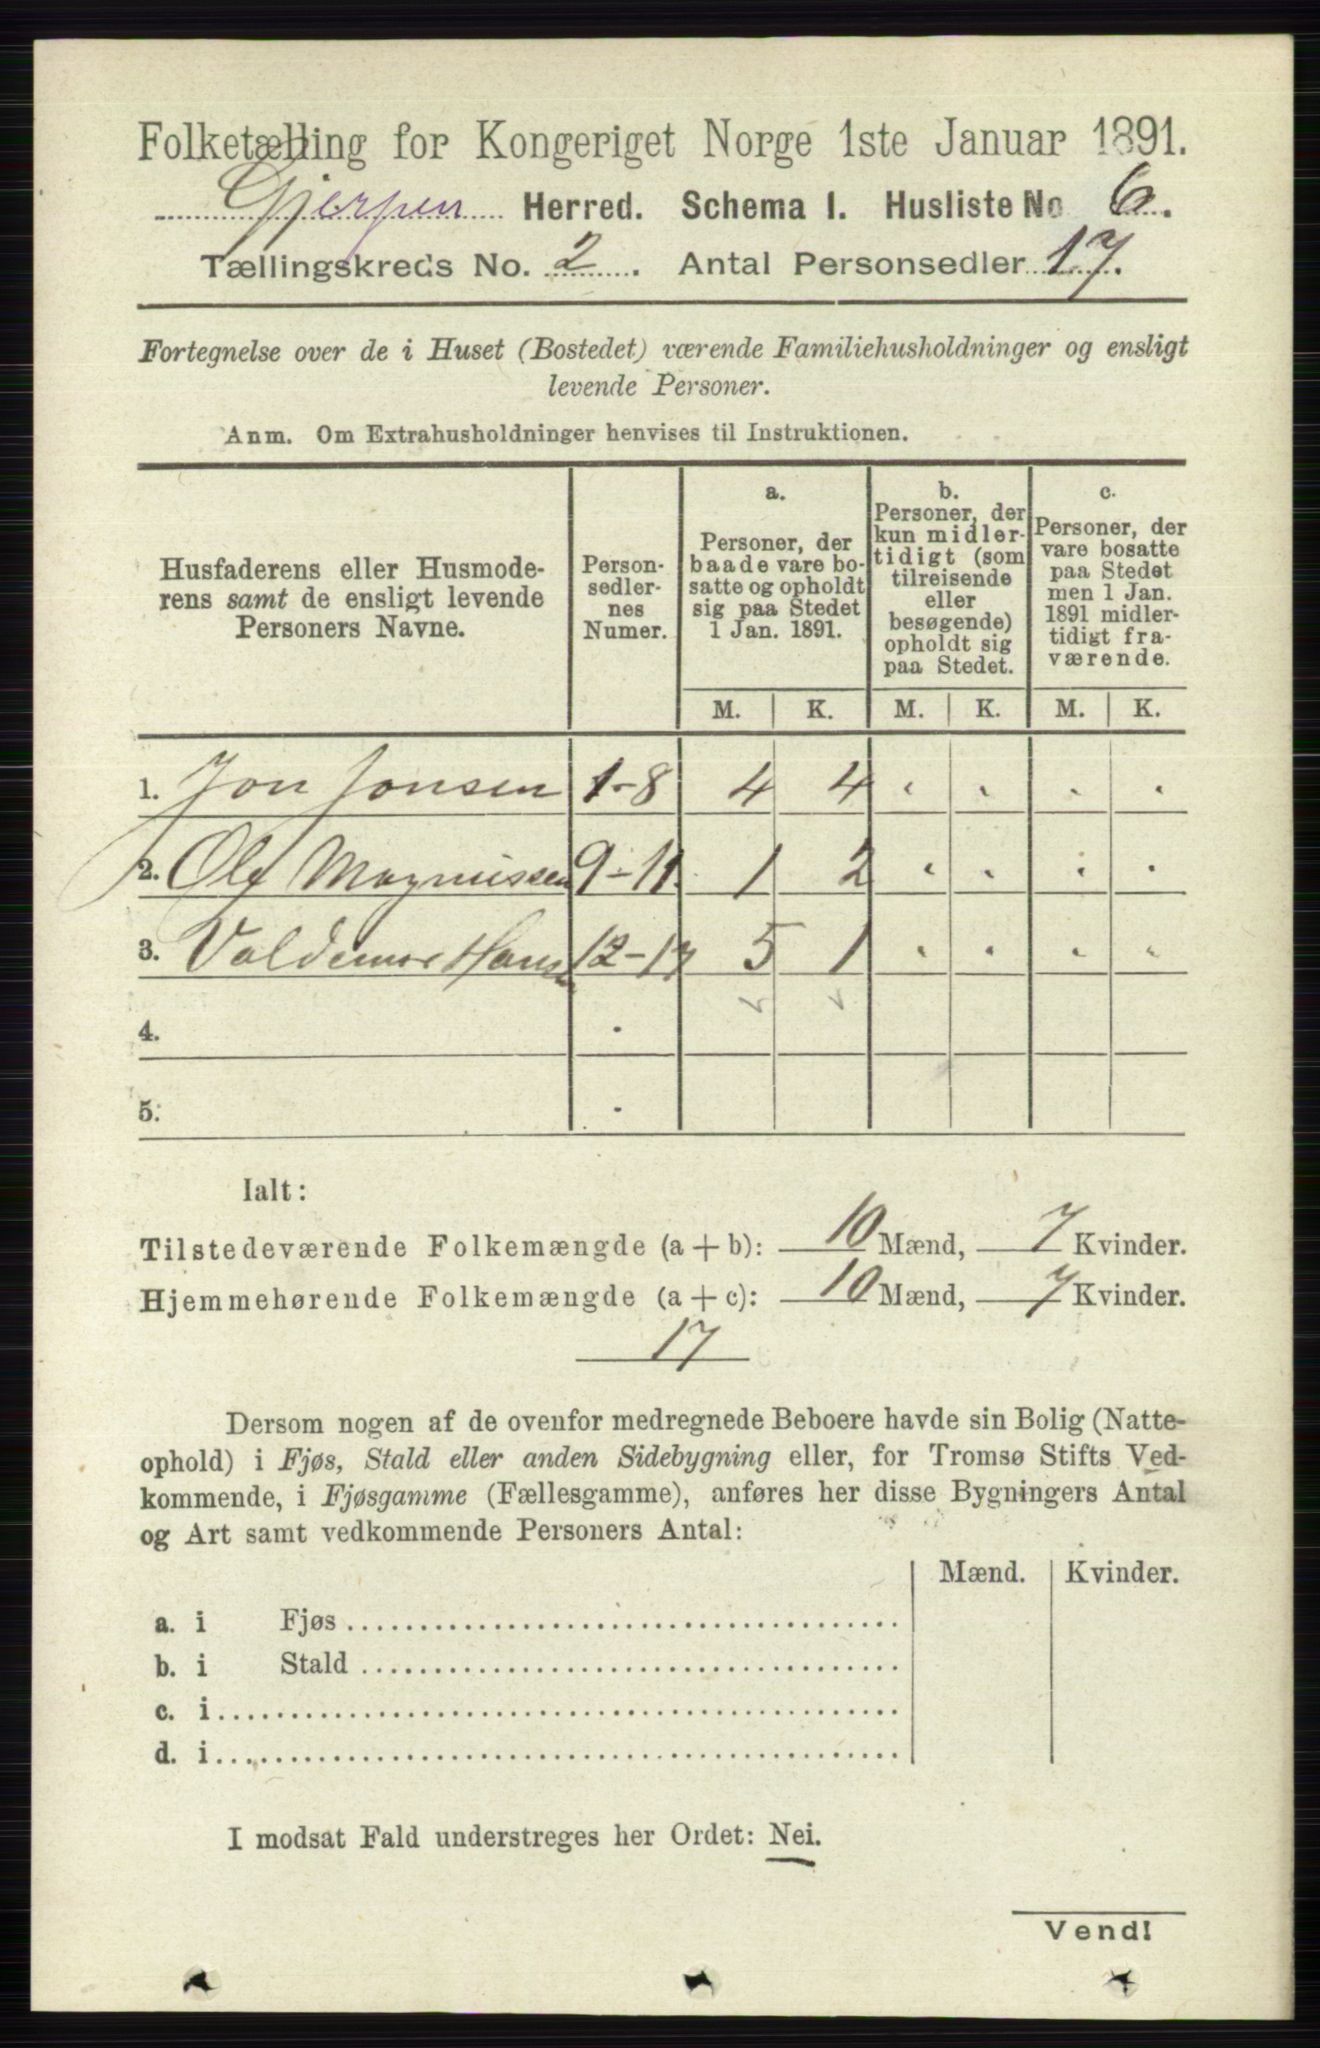 Folketælling for Kongeriget Norge 1ste Januar 1891.
Gjerpen Herred. Schema 1. Husliste No 6.
Tællingskreds No. 2. Antal Personsedler 17.
Fortegnelse over de i Huset (Bostedet) værende Familiehusholdninger og ensligt
levende Personer.
Anm. Om Extrahusholdninger henvises til Instruktionen.
Husfaderens eller Husmode-
rens samt de ensligt levende
Personers Navne.
Person-
sedler-
nes
Numer.
a.
Personer, der
baade vare bo-
satte og opholdt
sig paa Stedet
1 Jan. 1891.
b.
Personer, der
kun midler-
tidigt (som
tilreisende
eller
besøgende)
opholdt sig
paa Stedet.
c.
Personer, der
vare bosatte
paa Stedet
men 1 Jan.
1891 midler-
tidigt fra-
værende.
M. K. M. K. M. K.
1. Jon Jonsen 1-8 4 4 . . . .
2. Ole Magnussen 9-11 1 2 . . . .
3. Valdemar Hansen 12-17 5 1 . . . .
4. .
5. .
Ialt:
Tilstedeværende Folkemængde (a + b): 10 Mænd, 7 Kvinder.
Hjemmehørende Folkemængde (a + c): 10 Mænd, 7 Kvinder.
17
Dersom nogen af de ovenfor medregnede Beboere havde sin Bolig (Natte-
ophold) i Fjøs, Stald eller anden Sidebygning eller, for Tromsø Stifts Ved-
kommende, i Fjøsgamme (Fællesgamme), anføres her disse Bygningers Antal
og Art samt vedkommende Personers Antal:
Mænd. Kvinder.
a. i Fjøs
b. i Stald
c. i
d. i
I modsat Fald understreges her Ordet: Nei.
Vend!